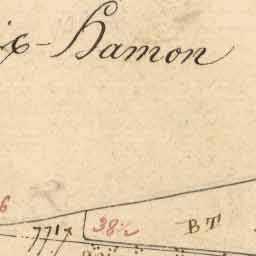 ix-Hamon
6
771
38
BT